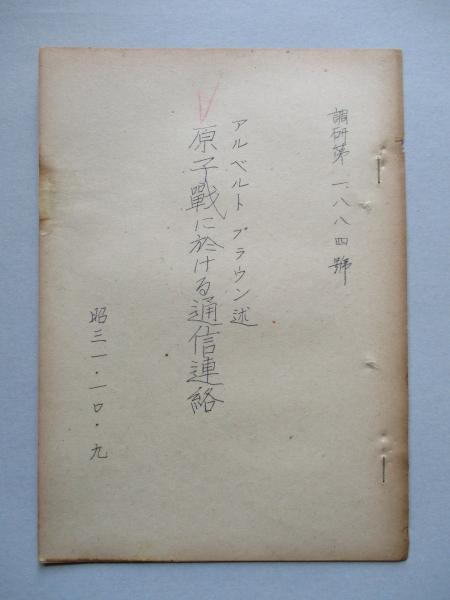 調研第一、八八四號
アルベルト ブラウン述
原子戰に於ける通信連絡
昭三一・一〇・九